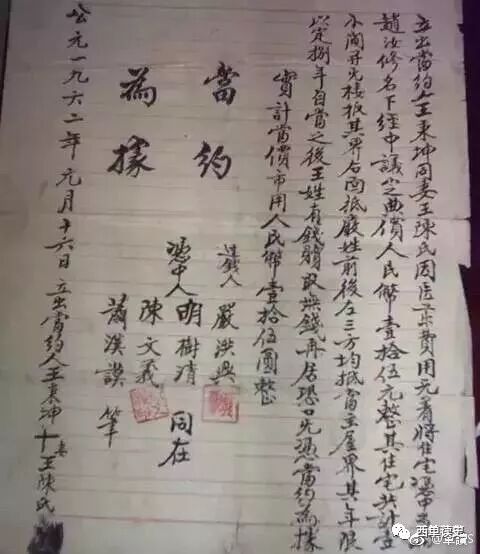 立出當約人王東坤同妻王陳氏因
趙汝修名下經中議定典價人民幣壹拾伍元整其住宅共計壹
小間並无樓板其界后面抵嚴姓前後左三方均抵當主屋界其年限
定捌年自當之後王姓有錢贖取無錢再居恐口无憑當約為據
實計當價市用人民幣壹拾伍圓整
當約
為據
過錢人 嚴洪興
憑中人 明樹清 同在
陳文義
蕭漢謨 筆
公元一九六二年元月十六日立出當約人王東坤十妻王陳氏
西单